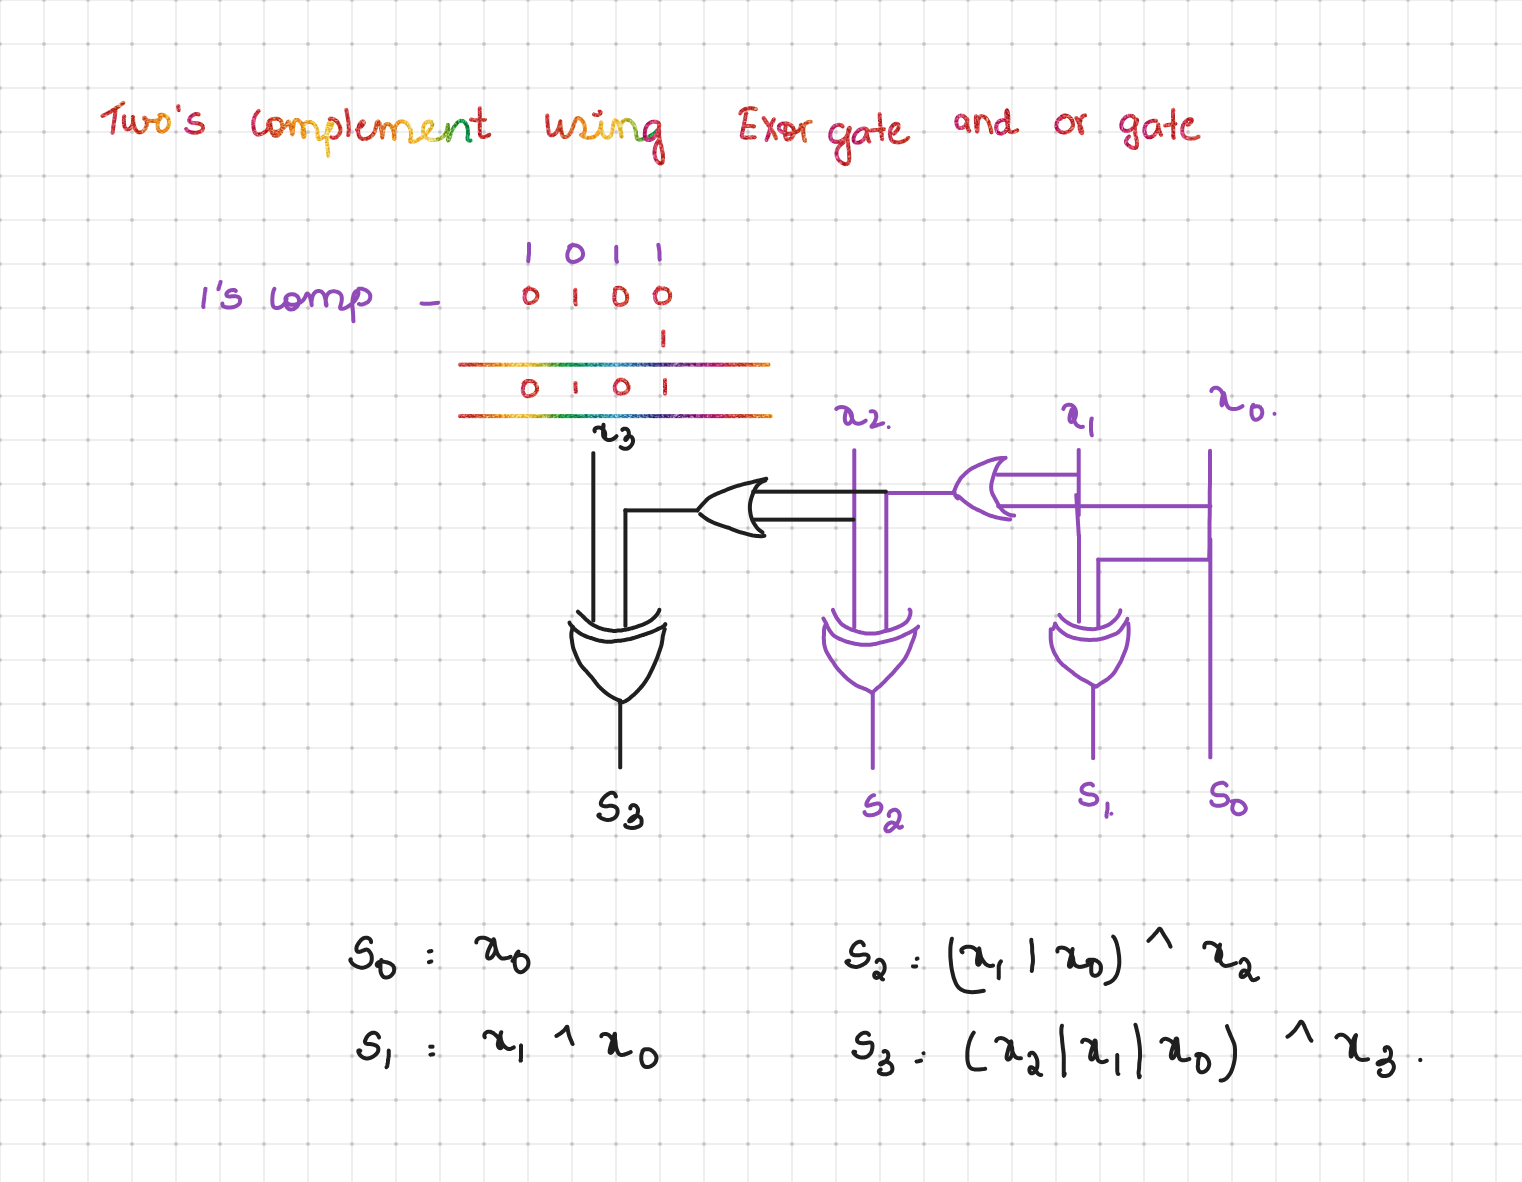 Two's complement using Exor gate and or gate
1 0 1 1
1's comp - 0 1 0 0
1
0 1 0 1
x3 x2. x1 x0.
S3 S2 S1. S0
S0 : x0 S2 : (x1 | x0) ^ x2
S1 : x1 ^ x0 S3 : (x2 | x1 | x0) ^ x3.